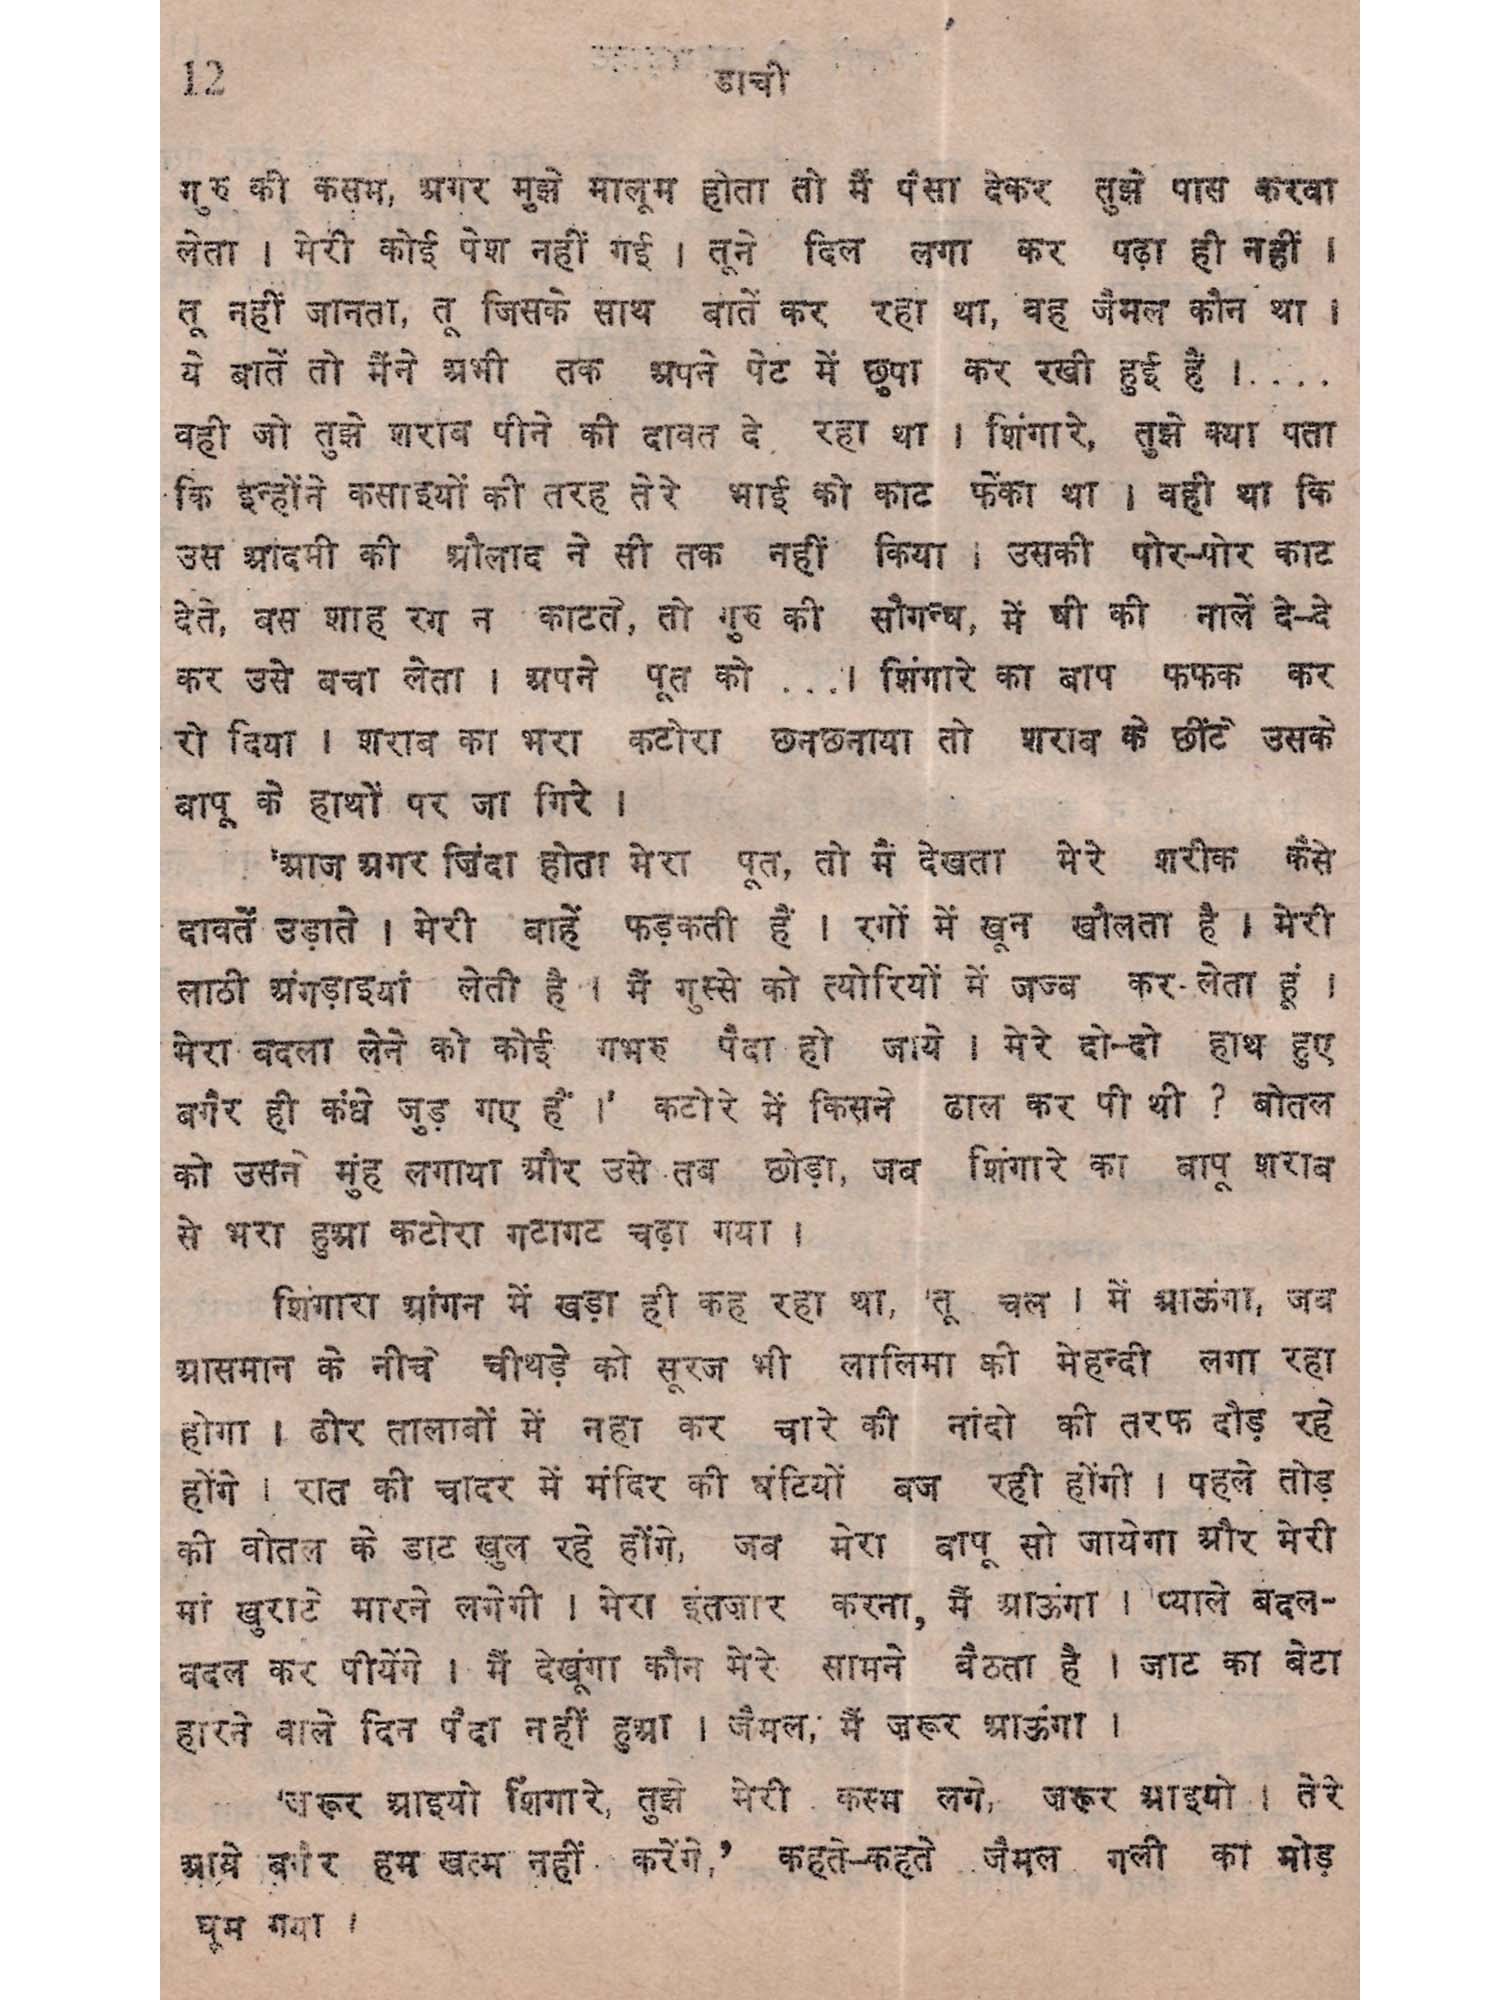 12
डाची
गुरु की कसम, अगर मुझे मालूम होता तो मैं पैसा देकर तुझे पास करवा
लेता । मेरी कोई पेश नहीं गई । तूने दिल लगा कर पढ़ा ही नहीं ।
तू नहीं जानता, तू जिसके साथ बातें कर रहा था, वह जैमल कौन था ।
ये बातें तो मैंने अभी तक अपने पेट में छुपा कर रखी हुई हैं ।....
वही जो तुझे शराब पीने की दावत दे रहा था । शिंगारे, तुझे क्या पता
कि इन्होंने कसाइयों की तरह तेरे भाई को काट फेंका था । वही था कि
उस आदमी की औलाद ने सी तक नहीं किया । उसकी पोर-पोर काट
देते, बस शाह रग न काटते, तो गुरु की सौगन्ध, में घी की नालें दे-दे
कर उसे बचा लेता । अपने पूत को ...। शिंगारे का बाप फफक कर
रो दिया । शराब का भरा कटोरा छनछनाया तो शराब के छींटे उसके
बापू के हाथों पर जा गिरे ।
'आज अगर ज़िंदा होता मेरा पूत, तो मैं देखता मेरे शरीक कैसे
दावतें उड़ाते । मेरी बाहें फड़कती हैं । रगों में खून खौलता है । मेरी
लाठी अंगड़ाइयां लेती है । मैं गुस्से को त्योरियों में जज्ब कर लेता हूं ।
मेरा बदला लेने को कोई गभरु पैदा हो जाये । मेरे दो-दो हाथ हुए
बगैर ही कंधे जुड़ गए हैं ।' कटोरे में किसने ढाल कर पी थी ? बोतल
को उसने मुंह लगाया और उसे तब छोड़ा, जब शिंगारे का बापू शराब
से भरा हुआ कटोरा गटागट चढ़ा गया ।
शिंगारा आंगन में खड़ा ही कह रहा था, 'तू चल । में आऊंगा, जब
आसमान के नीचे चीथड़े को सूरज भी लालिमा की मेहन्दी लगा रहा
होगा । ढोर तालाबों में नहा कर चारे की नांदो की तरफ दौड़ रहे
होंगे । रात की चादर में मंदिर की घंटियों बज रही होंगी । पहले तोड़
की बोतल के डाट खुल रहे होंगे, जब मेरा बापू सो जायेगा और मेरी
मां खुराटे मारने लगेगी । मेरा इंतज़ार करना, मैं आऊंगा । प्याले बदल-
बदल कर पीयेंगे । मैं देखूंगा कौन मेरे सामने बैठता है । जाट का बेटा
हारने वाले दिन पैदा नहीं हुआ । जैमल, मैं ज़रूर आऊंगा ।
'ज़रूर आइयो शिंगारे, तुझे मेरी कस्म लगे, जरूर आइयो । तेरे
आये बगैर हम खत्म नहीं करेंगे,' कहते-कहते जैमल गली का मोड़
घूम गया ।